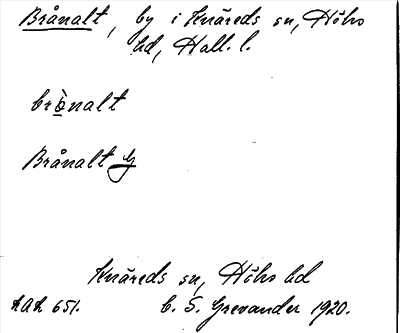 Brånalt, by i Knäreds sn, Höks
hd, Hall. l.
brò̱nalt
Brånalt
Knäreds sn, Höks hd
HAH 651. C. S. Grevander 1920.